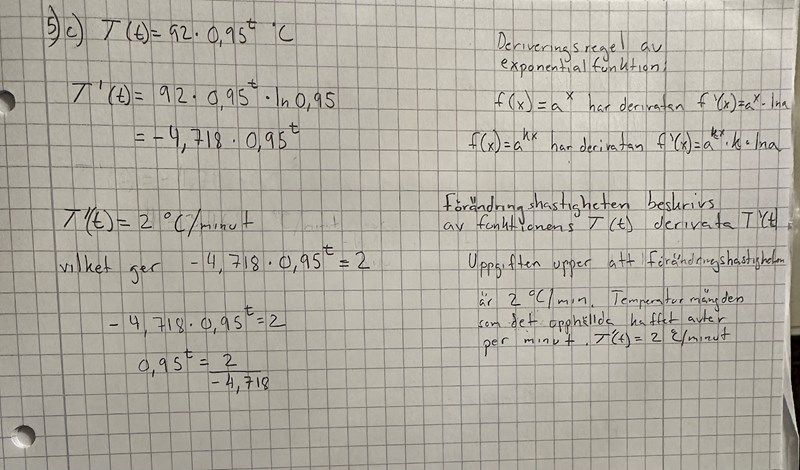 5)c) T(t)=92·0,95^t °C
T'(t)= 92·0,95^t·ln 0,95
= -4,718·0,95^t
T'(t)= 2 °C/minut
vilket ger -4,718·0,95^t=2
-4,718·0,95^t=2
0,95^t = 2/-4,718
Deriveringsregel av
exponentialfunktion:
f(x)=a^x har derivatan f'(x)=a^x·lna
f(x)=a^kx har derivatan f'(x)=a^kx·k·lna
Förändringshastigheten beskrivs
av funktionens T(t) derivata T'(t).
Uppgiften upper att förändringshastigheten
är 2°C/min. Temperatur mängden
som det upphällda kaffet avter
per minut. T'(t)= 2 °C/minut